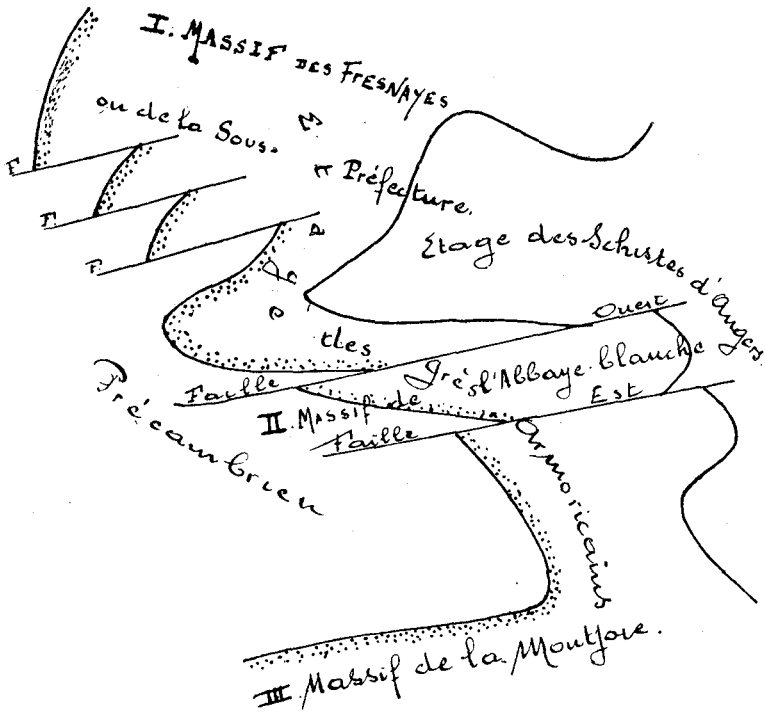 I. MASSIF DES FRESNAYES
ou de la Sous-
Préfecture.
F
F
F
Etage des Schistes d'Angers.
Ouest
Faille
Grès
tles
II. MASSIF de l'Abbaye-blanche
Est
Faille
Précambrien
Armoricains
III. Massif de la Montjoie.